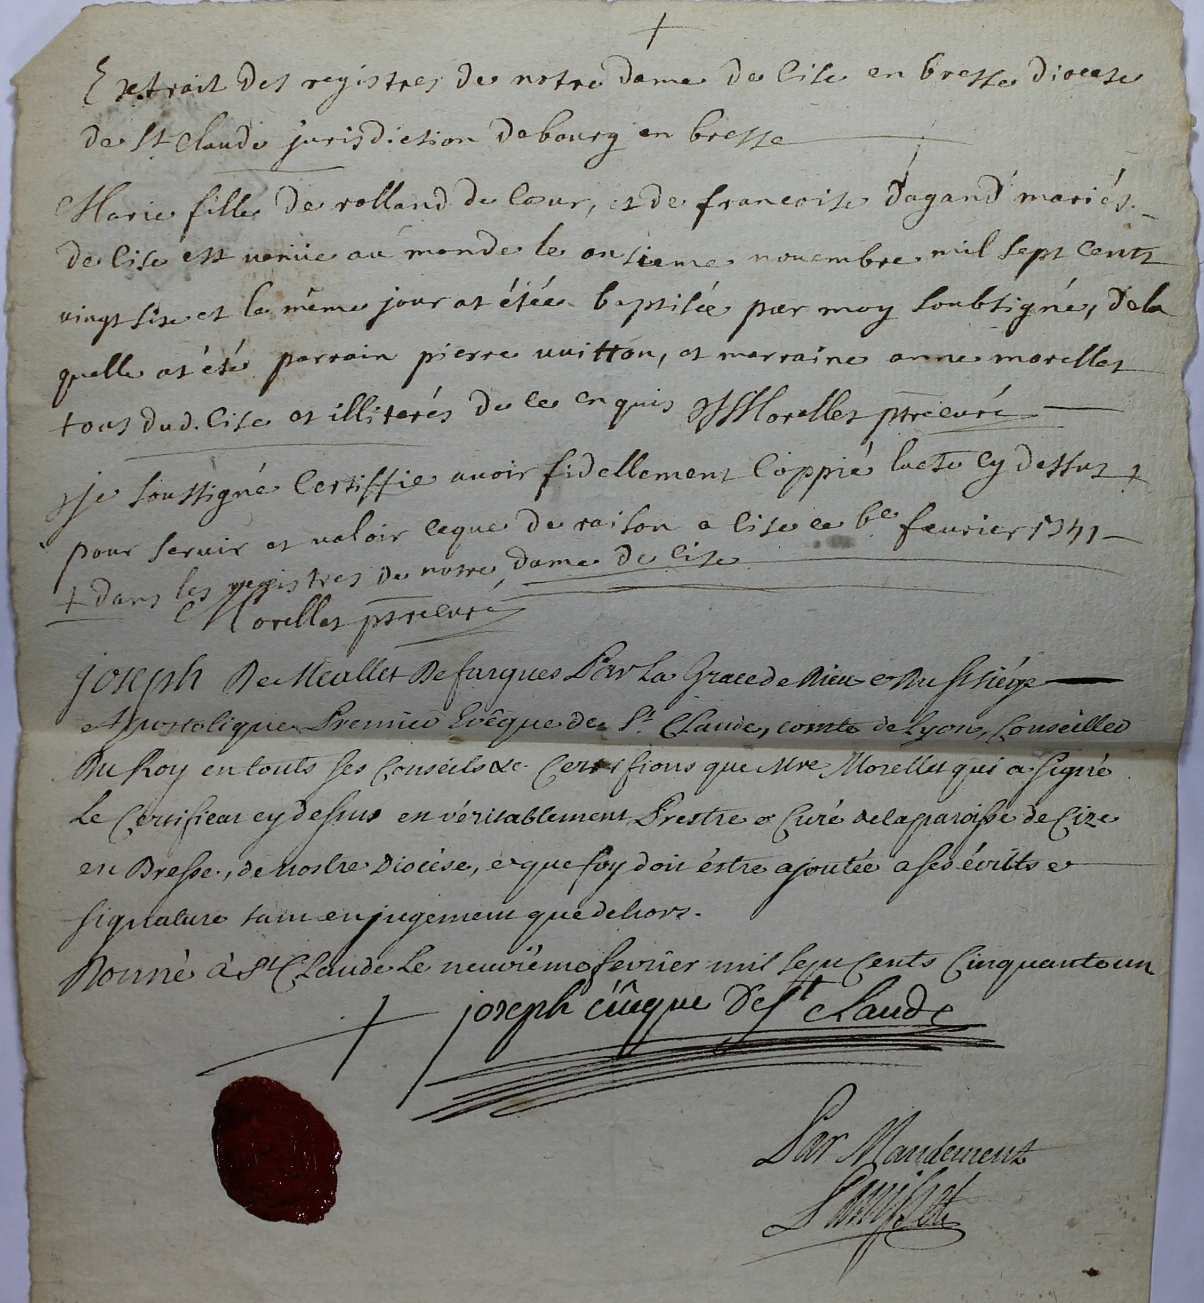 +
Extrait des registres de notre dame de Cise en bresse diocese
de St Claude jurisdiction de bourg en bresse
Marie fille de rolland de Cour, et de francoise dagand mariés
de Cise est venüe au monde le onsieme novembre mil sept cents
vingt six et le même jour at étée baptisée par moy soubsigné, de la
quelle at été parrain pierre vuitton, et marraine anne morellet
tous dud. Cise et illiterés de ce enquis Morellet ptre curé
Je soussigné Certiffie avoir fidellement Coppié lacte cy dessus +
pour servir et valoir ceque de raison a Cise ce 6e fevrier 1741
+ dans les registres de notre dame de Cise
Morellet ptre curé
joseph De Meallet De fargues Par La Grace de Dieu & Du St siége
Apostolique Premier Evêque de St. Claude, comte de Lyon, Conseiller
Du Roy en touts ses Conseils &c. Certifions que Mre Morellet qui a signé
Le Certificat cy dessus est véritablement Prestre & Curé de la paroisse de Cize
en Bresse, de nostre Diocèse, & que foy doit éstre ajoutée a ses écrits &
signature tant en jugement que dehors.
Donné à St Claude Le neuviéme fevrier mil sept Cents Cinquante un
+ joseph évêque de St Claude
Par Mandement